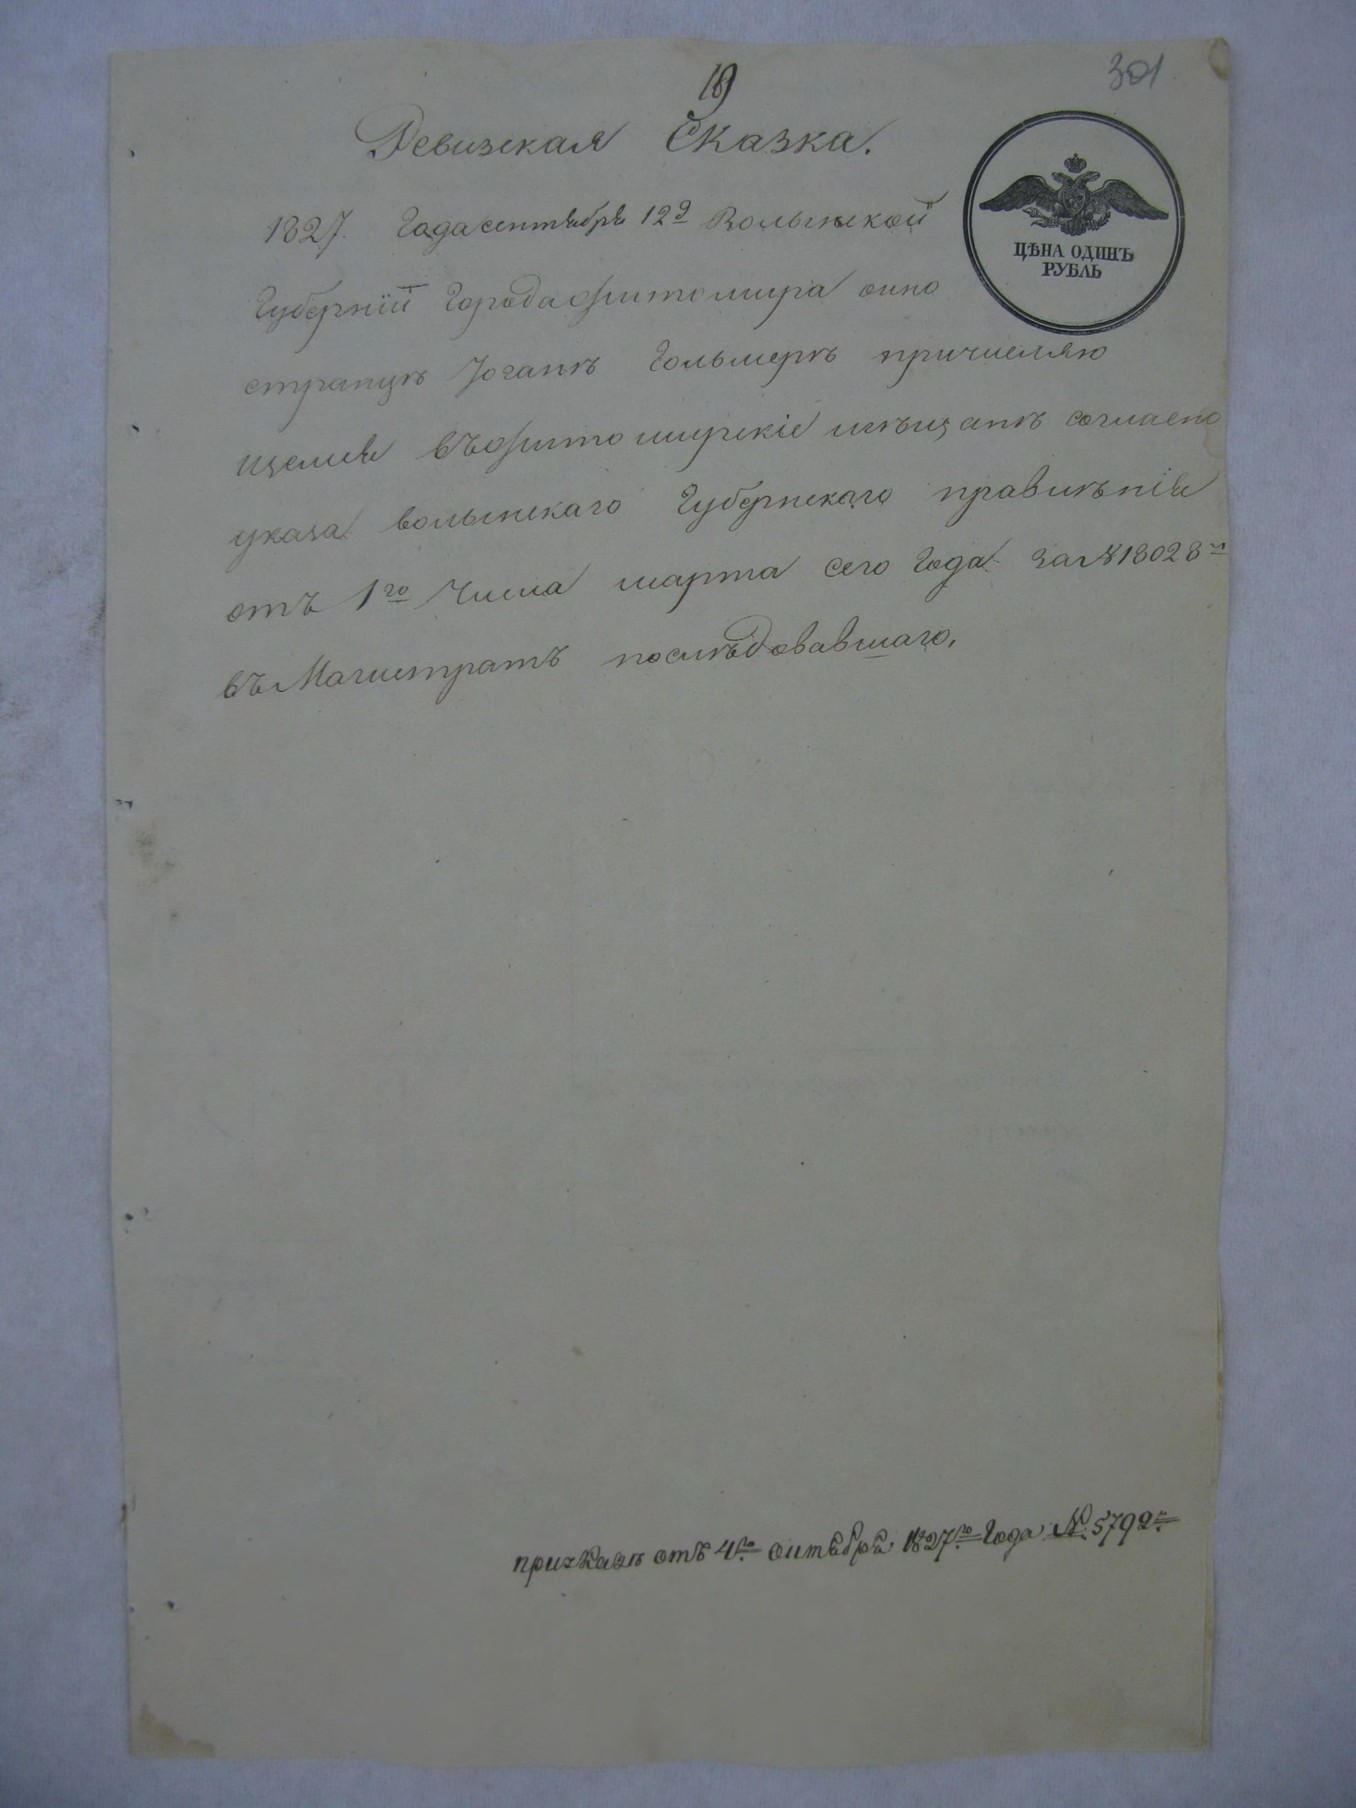 301
19
Ревизская Сказка.
ЦѢНА ОДИНЪ
РУБЛЬ
1827. Года сентября 12д Волынской
Губернїи Города Житомира ино
странцъ Іоганъ Гольмеръ причисляю
щемся въ Житомирскіе мѣщанъ согласно
указа волынскаго Губернскаго правленія
отъ 1го Числа марта сего Года за № 18028м
въ Магистратъ послѣдовавшаго.
отъ 4го октября 1827го Года № 5792м